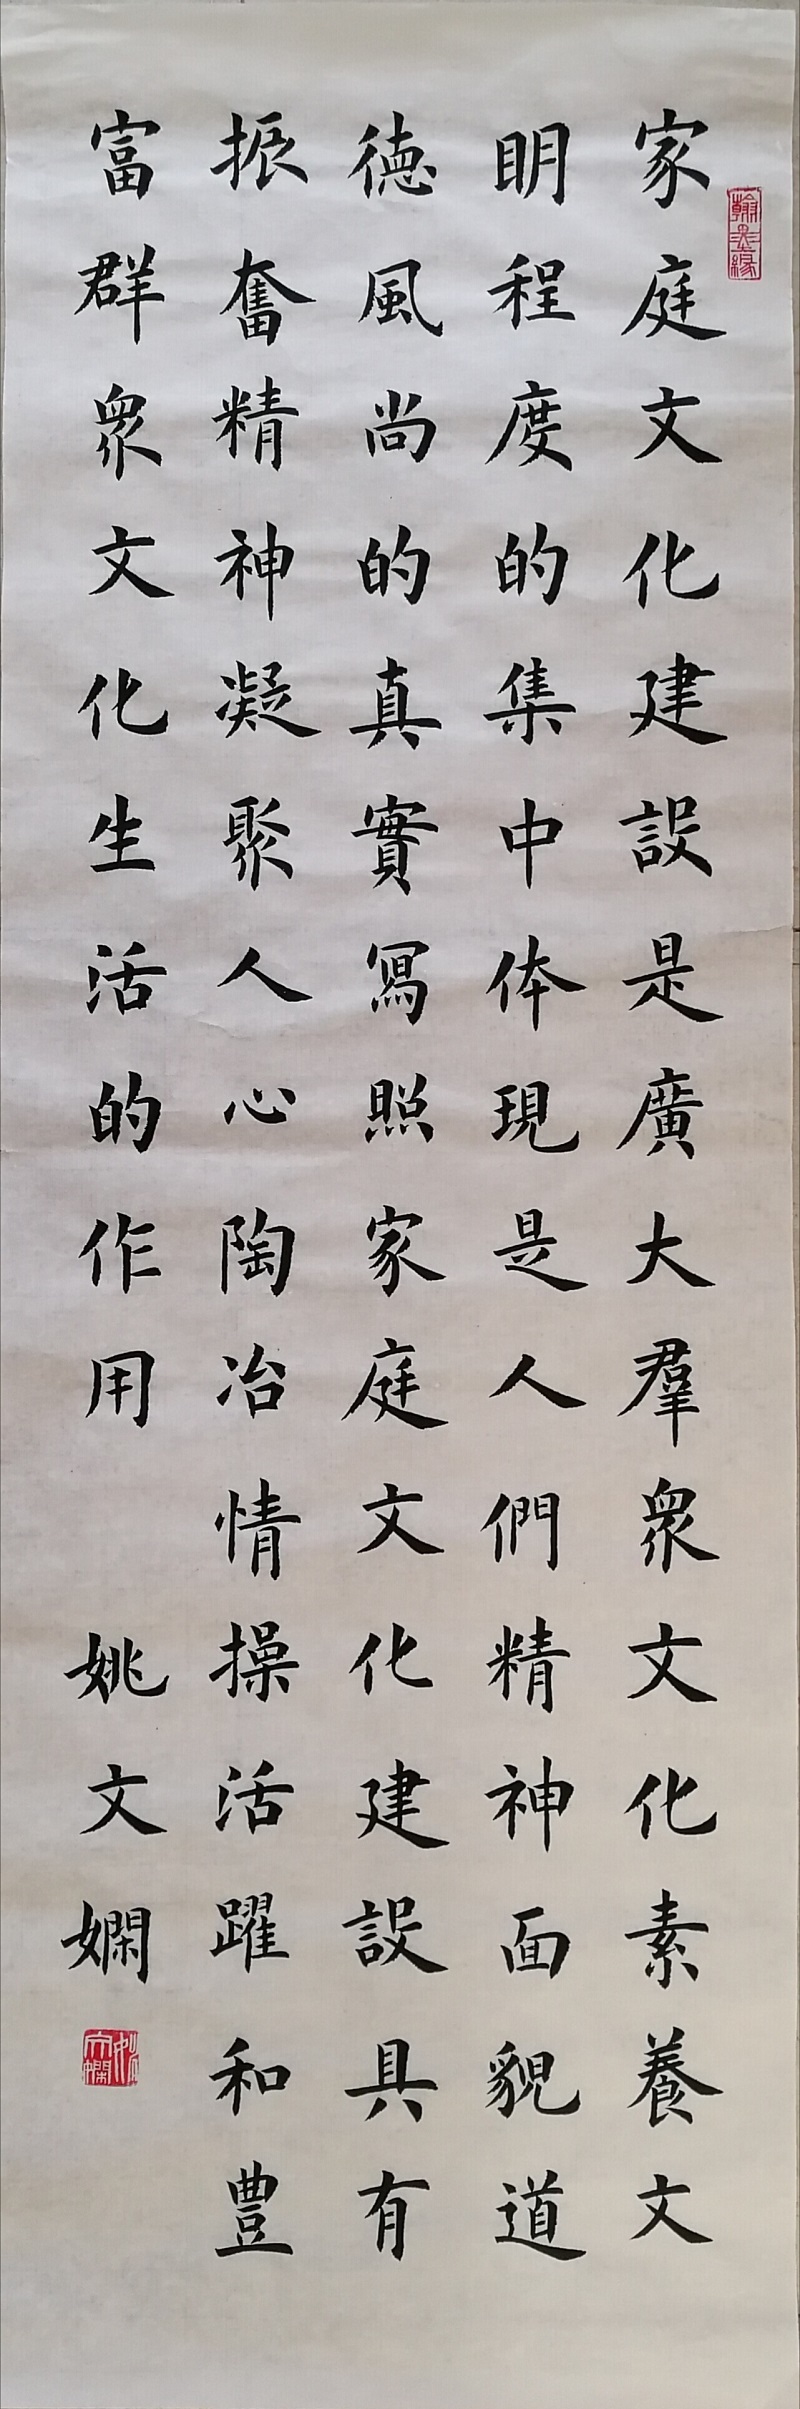 家庭文化建設是廣大羣衆文化素養文
明程度的集中体現是人們精神面貌道
德風尚的真實寫照家庭文化建設具有
振奮精神凝聚人心陶冶情操活躍和豊
富群衆文化生活的作用 姚文嫻
翰墨緣
姚文嫻